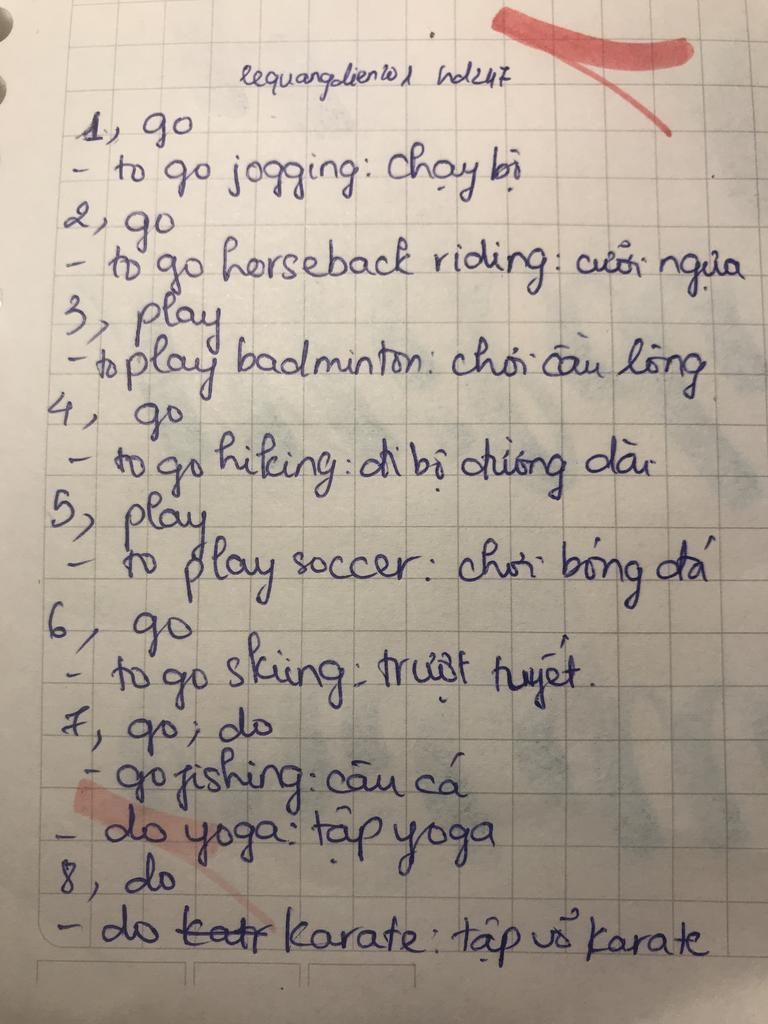 lequangdien101 hd247
1, go
- to go jogging: chạy bộ
2, go
- to go horseback riding: cưỡi ngựa
3, play
- to play badminton: chơi cầu lông
4, go
- to go hiking: đi bộ đường dài
5, play
- to play soccer: chơi bóng đá
6, go
- to go skiing: trượt tuyết.
7, go; do
- go fishing: câu cá
- do yoga: tập yoga
8, do
- do karate: tập võ karate